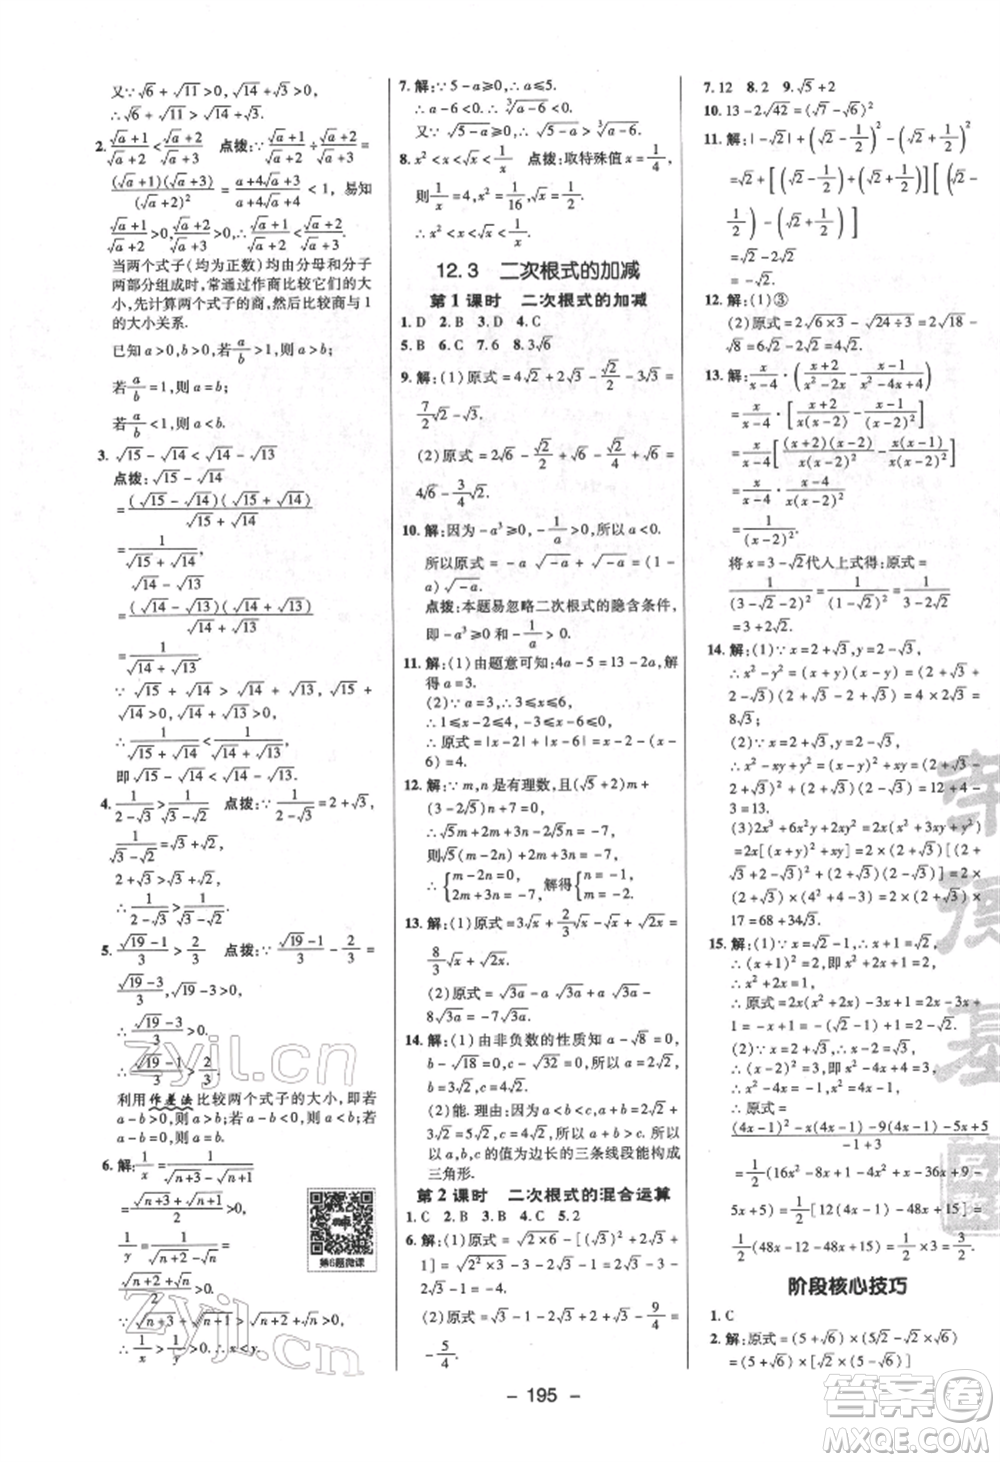 又∵√6+√11>0,√14+√3>0,∴
√6+√11>√14+√3.
2. (√a+1)/(√a+2)<(√a+2)/(√a+3) 点拨:∵(√a+1)/(√a+2)÷(√a+2)/(√a+3)=
(√a+1)(√a+3)/(√a+2)²=(a+4√a+3)/(a+4√a+4)<1,易知
(√a+1)/(√a+2)>0,(√a+2)/(√a+3)>0,∴(√a+1)/(√a+2)<(√a+2)/(√a+3).
当两个式子(均为正数)均由分母和分子
两部分组成时,常通过作商比较它们的大
小,先计算两个式子的商,然后比较商与1
的大小关系.
已知a>0,b>0,若a/b>1,则a>b;
若a/b=1,则a=b;
若a/b<1,则a<b.
3. √15-√14<√14-√13
点拨:√15-√14
=(√15-√14)(√15+√14)/(√15+√14)
=1/(√15+√14)
√14-√13
=(√14-√13)(√14+√13)/(√14+√13)
=1/(√14+√13)
∵√15+√14>√14+√13>0,
∴1/(√15+√14)<1/(√14+√13)
即√15-√14<√14-√13.
4. 1/(2-√3)>1/(√3-√2) 点拨:∵1/(2-√3)=2+√3,
1/(√3-√2)=√3+√2,
2+√3>√3+√2,
∴1/(2-√3)>1/(√3-√2).
5. (√19-1)/3>2/3 点拨:∵(√19-1)/3-2/3=
(√19-3)/3,√19>√9,∴√19-3>0,
∴(√19-3)/3>0.
∴(√19-1)/3>2/3.
利用作差法比较两个式子的大小,即若
a-b>0,则a>b;若a-b<0,则a<b;若
a-b=0,则a=b.
6. 解:1/x=1/(√n+3-√n+1)=
(√n+3+√n+1)/2>0,
1/y=1/(√n+2-√n)=
(√n+2+√n)/2>0,
∵√n+3+√n+1>√n+2+√n>0,
∴1/x>1/y>0,∴x<y.
第6题微课
7. 解:∵5-a≥0,∴a≤5.
∴a-6<0.∴∛a-6<0.
又∵√5-a≥0,∴√5-a>∛a-6.
8. x²<x<√x<1/x 点拨:取特殊值x=1/4,
则1/x=4,x²=1/16,√x=1/2,
∴x²<x<√x<1/x.
12.3 二次根式的加减
第1课时 二次根式的加减
1. D 2. B 3. D 4. C
5. B 6. C 7. 6 8. 3√6
9. 解:(1)原式=4√2+2√3-√2/2-3√3=
7/2√2-√3.
(2)原式=2√6-√2/2-√2/4+2√6=
4√6-3/4√2.
10. 解:因为-a³≥0,-1/a>0,所以a<0.
所以原式=-a√-a+√-a=(1-
a)√-a.
点拨:本题易忽略二次根式的隐含条件,
即-a³≥0和-1/a>0.
11. 解:(1)由题意可知:4a-5=13-2a,解
得a=3.
(2)∵a=3,∴3≤x≤6.
∴1≤x-2≤4,-3≤x-6≤0.
∴原式=|x-2|+|x-6|=x-2-(x-
6)=4.
12. 解:∵m,n是有理数,且(√5+2)m+
(3-2√5)n+7=0,
∴√5m+2m+3n-2√5n=-7,
则√5(m-2n)+2m+3n=-7,
∴{m-2n=0, 2m+3n=-7, 解得{n=-1, m=-2.
13. 解:(1)原式=3√x+2/3√x-√2x+√2x=
(2)原式=√3a-5√3a-3√3a=
-7√3a=-7√3a.
14. 解:(1)由非负数的性质知a-√8=0,
b-√18=0,c-√32=0,所以a=2√2,
b=3√2,c=4√2.
(2)能.理由:因为a<b<c,a+b>c,所
以以a,b,c的值为边长的三条线段能构成
三角形.
第2课时 二次根式的混合运算
1. C 2. B 3. C 4. C 5. 2
6. 解:(1)原式=√2×6-[(√3)²+2√3+
1]=√2²×3-(3+2√3+1)=2√3-4-
2√3=-4.
(2)原式=√3-1-2√3+2+√3-9/4=
-5/4.
7. 12 8. 2 9. √5+2
10. 13-2√42=(√7-√6)²
11. 解:|-√2|+(√2-1/2)²-(√2+1/2)²
=√2+[(√2-1/2)+(√2+1/2)][(√2-
1/2)-(√2+1/2)]
=√2-2√2
=-√2.
12. 解:(1)③
(2)原式=2√6×3-√24÷3=2√18-
√8=6√2-2√2=4√2.
13. 解:x/(x-4)·((x+2)/(x²-2x)-(x-1)/(x²-4x+4))
=x/(x-4)·[(x+2)/x(x-2)-(x-1)/(x-2)²]
=x/(x-4)[(x+2)(x-2)/x(x-2)²-x(x-1)/x(x-2)²]
=x/(x-4)·(x-4)/x(x-2)²
=1/(x-2)².
将x=3-√2代入上式得:原式=
1/(3-√2-2)²=1/(1-√2)²=1/(3-2√2)
=3+2√2.
14. 解:(1)∵x=2+√3,y=2-√3,
∴x²-y²=(x+y)(x-y)=(2+√3+
2-√3)(2+√3-2+√3)=4×2√3=
8√3;
(2)∵x=2+√3,y=2-√3,
∴x²-xy+y²=(x-y)²+xy=(2+√3-
2+√3)²+(2+√3)(2-√3)=12+1
=13.
(3)2x³+6x²y+6xy²+2y³
=2x(x²+2xy+y²)+2y(x²+xy+y²)
15. 解:(1)∵x=√2-1,∴x+1=√2.
∴(x+1)²=2,即x²+2x+1=2.
∴x²+2x=1.
(2)∵x=2-√3,∴x-2=-√3.
∴(x-2)²=3,即x²-4x+4=3.
∴x²-4x=-1,x²=4x-1.
∴原式=
((4x-1)²-4x(4x-1)-9(4x-1)-5x+5)/(-1+3)
=1/2(16x²-8x+1-16x²+4x-36x+9-
5x+5)
=1/2(48x-12-48x+15)=1/2×3=3/2.
阶段核心技巧
1. C
2. 解:原式=(5+√6)×(5√2-√2×√6)
=(5+√6)×[√2×(5-√6)]
- 195 -
zyjl.cn
zyjl.cn
答案圈
MXQE.COM